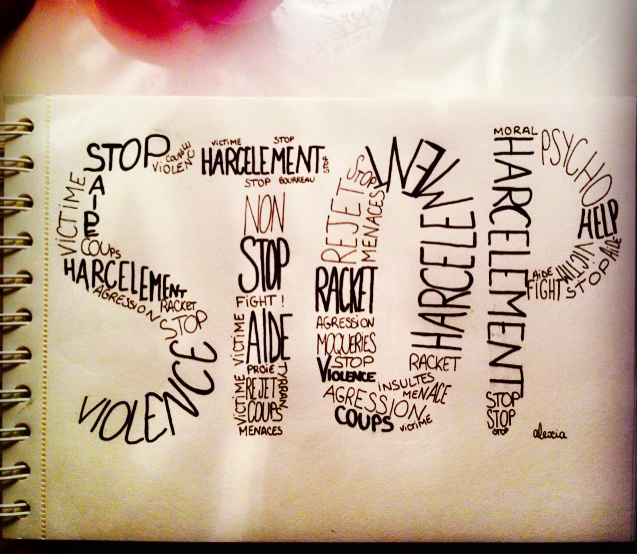 STOP
COUPABLE
VIOLENCE
VICTIME
AIDE
COUPS
HARCELEMENT
AGRESSION
RACKET
STOP
VIOLENCE
VICTIME STOP
HARCELEMENT
STOP
STOP BOURREAU
NON
STOP
FIGHT !
VICTIME
AIDE
PROIE
TYRAN
VICTIME
REJET
COUPS
MENACES
STOP
REJET
MENACES
RACKET
AGRESSION
MOQUERIES
STOP
VIOLENCE
INSULTES
AGRESSION
COUPS
VICTIME
MENACE
RACKET
HARCELEMENT
MORAL
HARCELEMENT
STOP
STOP
STOP
PSYCHO
HELP
AIDE
VICTIME
STOP
AIDE
FIGHT
alexia